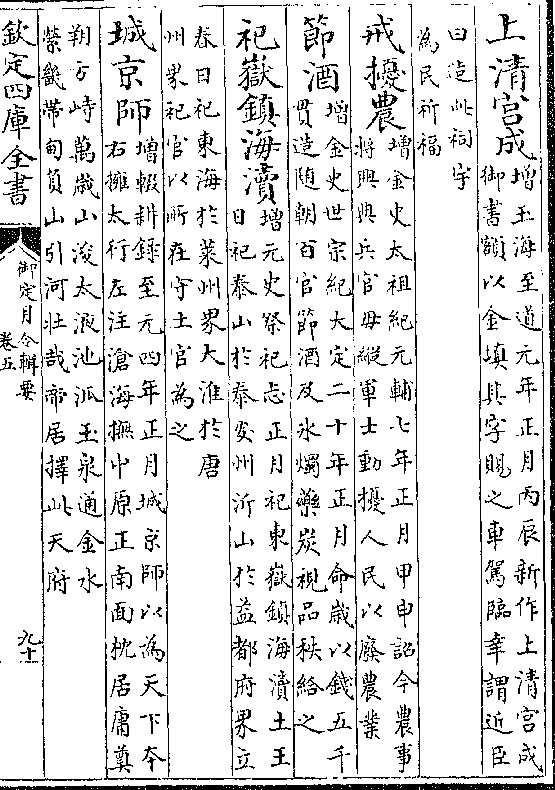 上清宮成
增玉海至道元年正月丙辰新作上清宮成
御書額以金填其字賜之車駕臨幸謂近臣
曰造此祠宇
為民祈福
戒擾農
增金史太祖紀元輔七年正月甲申詔今農事
將興與兵官毋縱軍士動擾人民以廢農業
節酒
增金史世宗紀大定二十年正月命歳以錢五千
貫造随朝百官節酒及氷燭藥炭視品秩給之
祀嶽鎮海瀆
增元史祭祀志正月祀東嶽鎮海瀆土王
日祀泰山於泰安州沂山於益都府界立
春日祀東海於萊州界大淮於唐
州界祀官以所在守土官為之
城京師
增輟耕録至元四年正月城京師以為天下夲
右擁太行左注滄海撫中原正南面枕居庸奠
朔方峙萬歳山浚太液池派玉泉通金水
縈畿帶甸負山引河壯哉帝居擇此天府
欽定四庫全書
御定月令輯要
卷五
九十